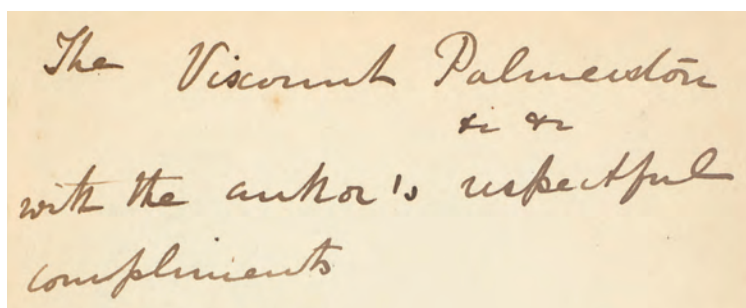 The Viscount Palmerston
&c &c
with the author's respectful
compliments